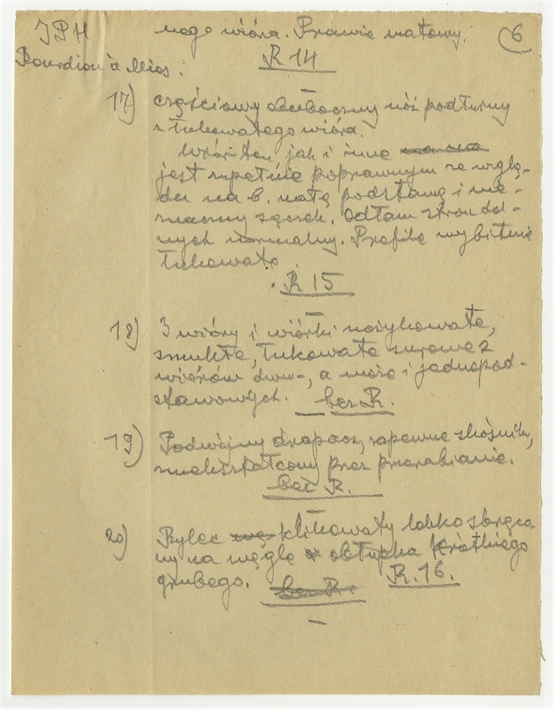 IPH
nego wióra. Prawie matowy.
6
R 14
Bourdiou à Mios:
17) częściowy obuboczny nóż podłużny
z łukowatego wióra.
Wiór ten, jak i inne
jest zupełnie poprawnym ze wzglę-
du na b. małą podstawę i nie-
znaczny sęczek. Odłam stron dol-
nych normalny. Profile wybitnie
łukowate
R 15
18) 3 wióry i wiórki nożykowate,
smukłe, łukowate surowe z
wiórów dwu-, a może i jednopod-
stawowych. bez R.
19) Podwójny drapacz, zapewne skośnik,
zniekształcony przez przerabianie.
bez R.
20) Rylec klinowaty lekko skręco-
ny na węgle obłupka krótkiego
grubego. bez R. R. 16.